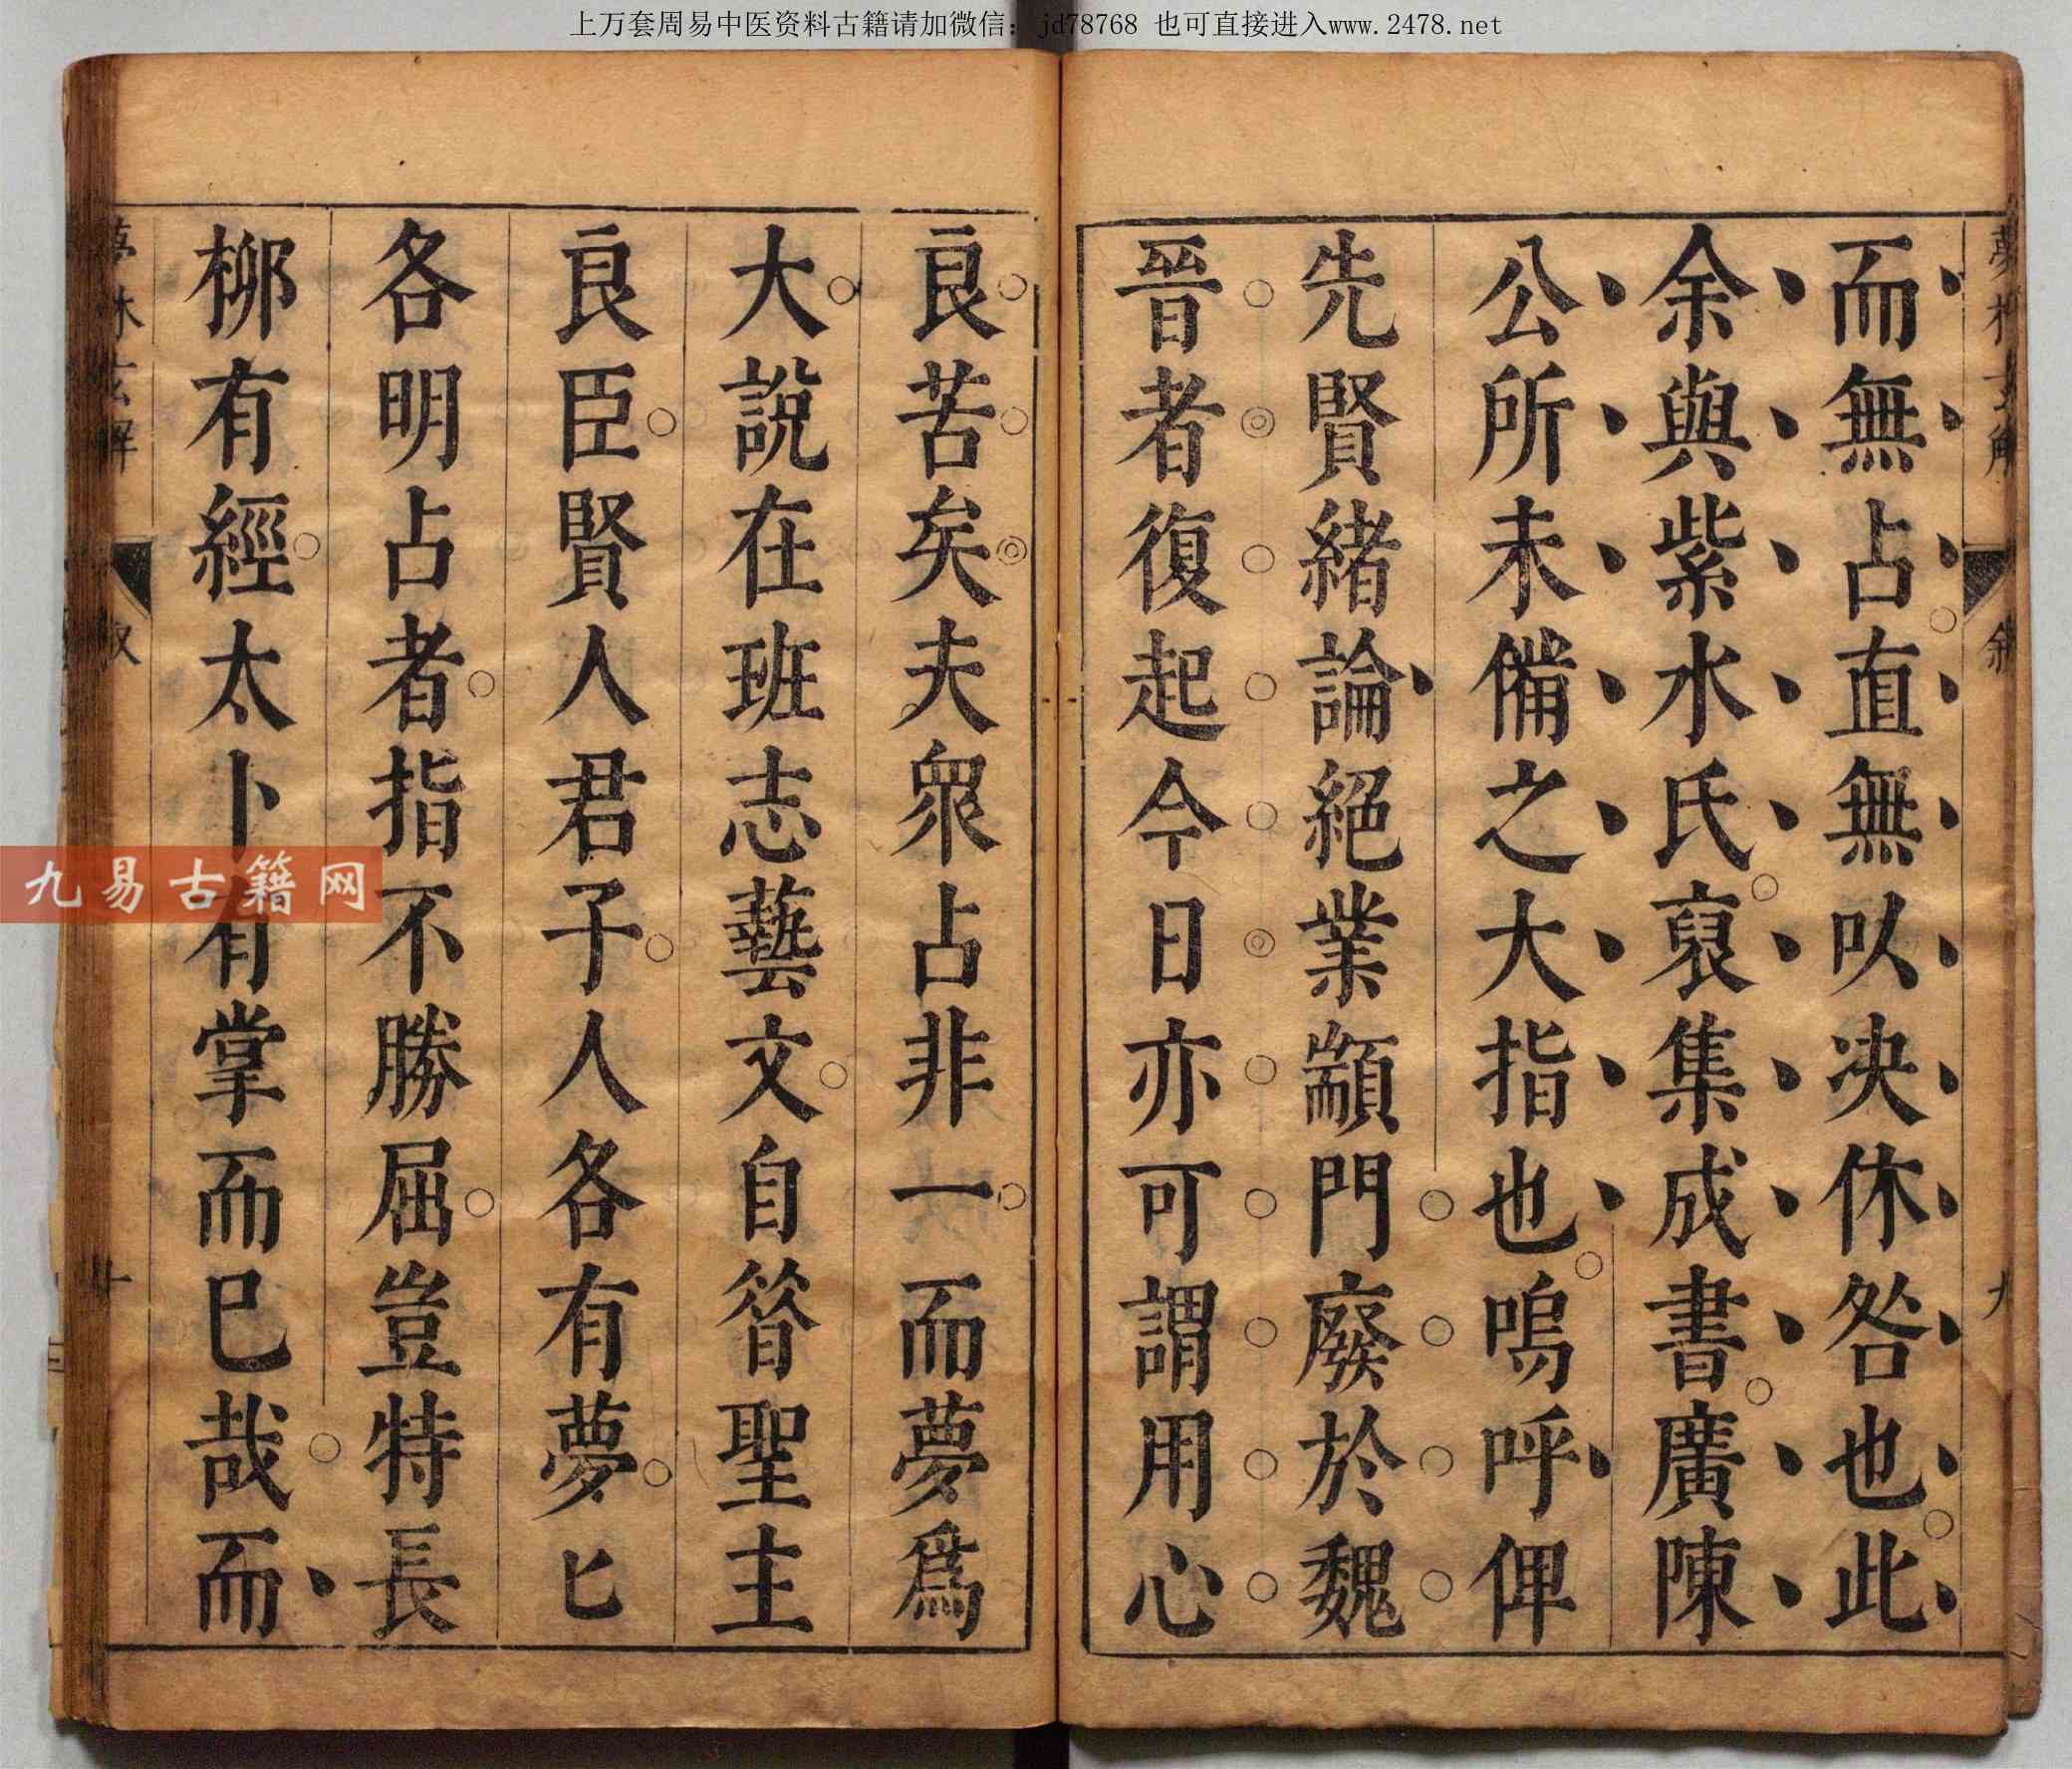 上万套周易中医资料古籍请加微信：jd78768 也可直接进入www.2478.net
而無占直無以决休咎也此
余與紫水氏裒集成書廣陳
公所未備之大指也嗚呼俾
先賢緒論絕業顓門廢於魏
晉者復起今日亦可謂用心
良苦矣夫衆占非一而夢爲
大說在班志藝文自昝聖主
良臣賢人君子人各有夢匕
各明占者指不勝屈豈特長
柳有經太卜有掌而巳哉而
九易古籍网
敘